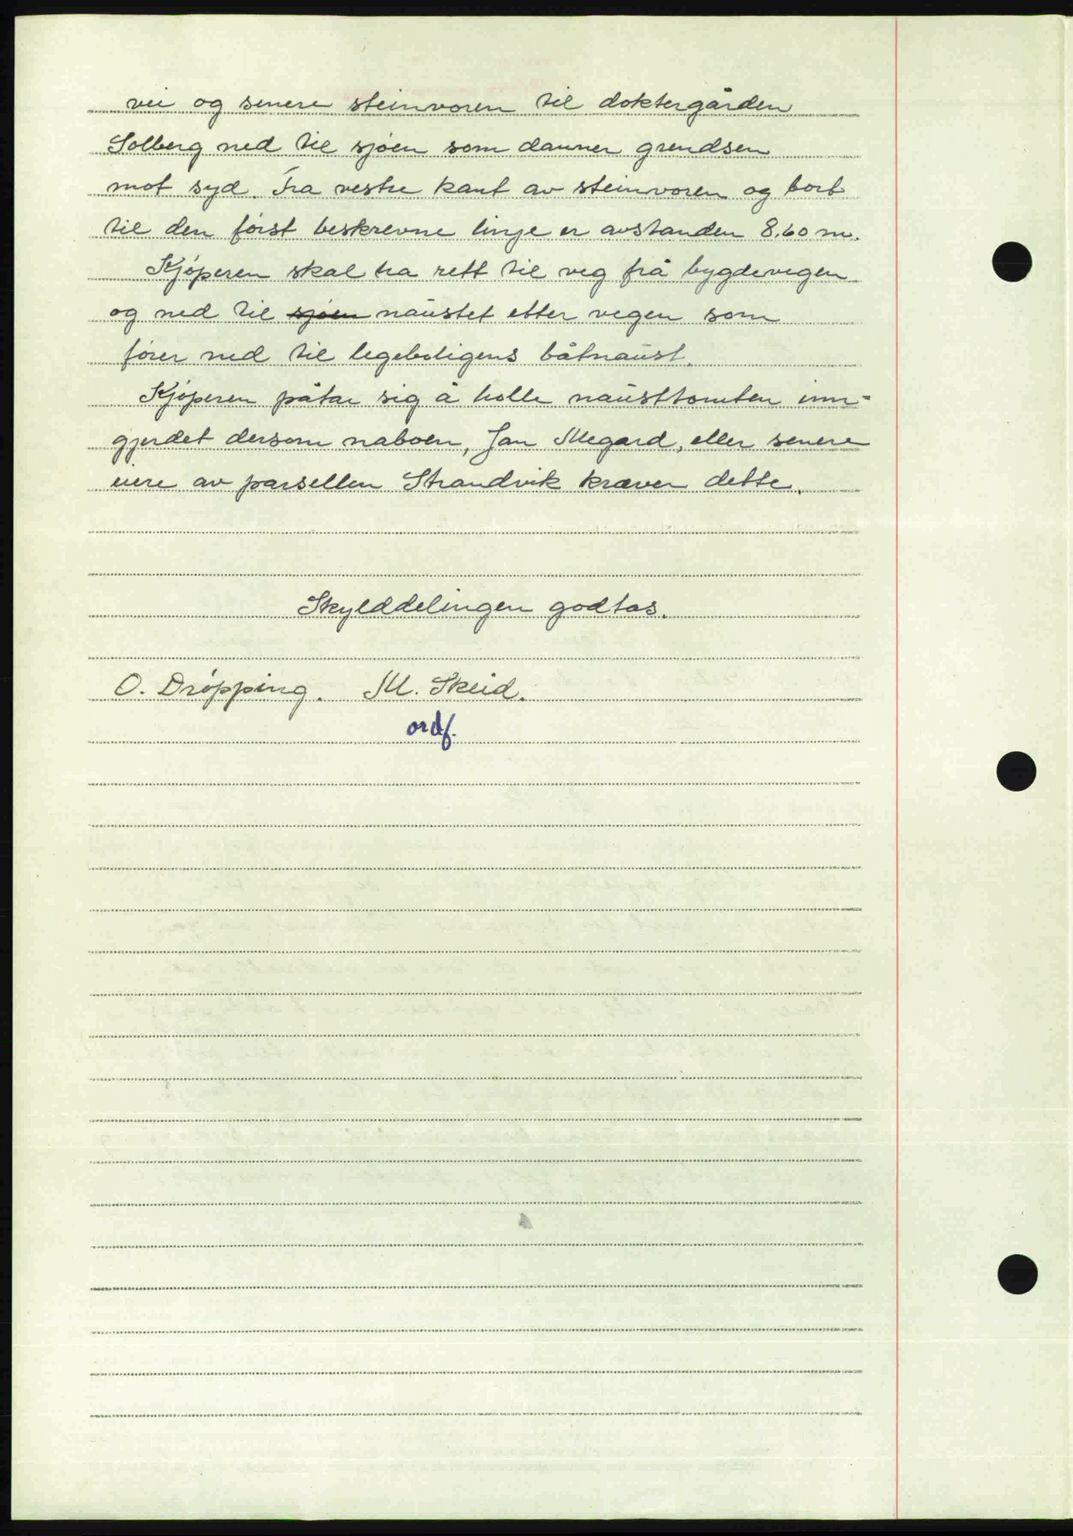 vei og senere steinvoren til doktergården
Solberg ned til sjøen som danner grendsen
mot syd. Fra vestre kant av steinvoren og bort
til den først beskrevne linje er avstanden 8,60 m.
Kjøperen skal ha rett til veg frå bygdevegen
og ned til sjøen naustet etter vegen som
fører ned til legeboligens båtnaust.
Kjøperen påtar sig å holle nausttomten inn-
gjerdet dersom naboen, Jan Megard, eller senere
eiere av parsellen Strandvik kræver dette.
Skylddelingen godtas.
O. Drøpping. M. Skeid.
ordf.